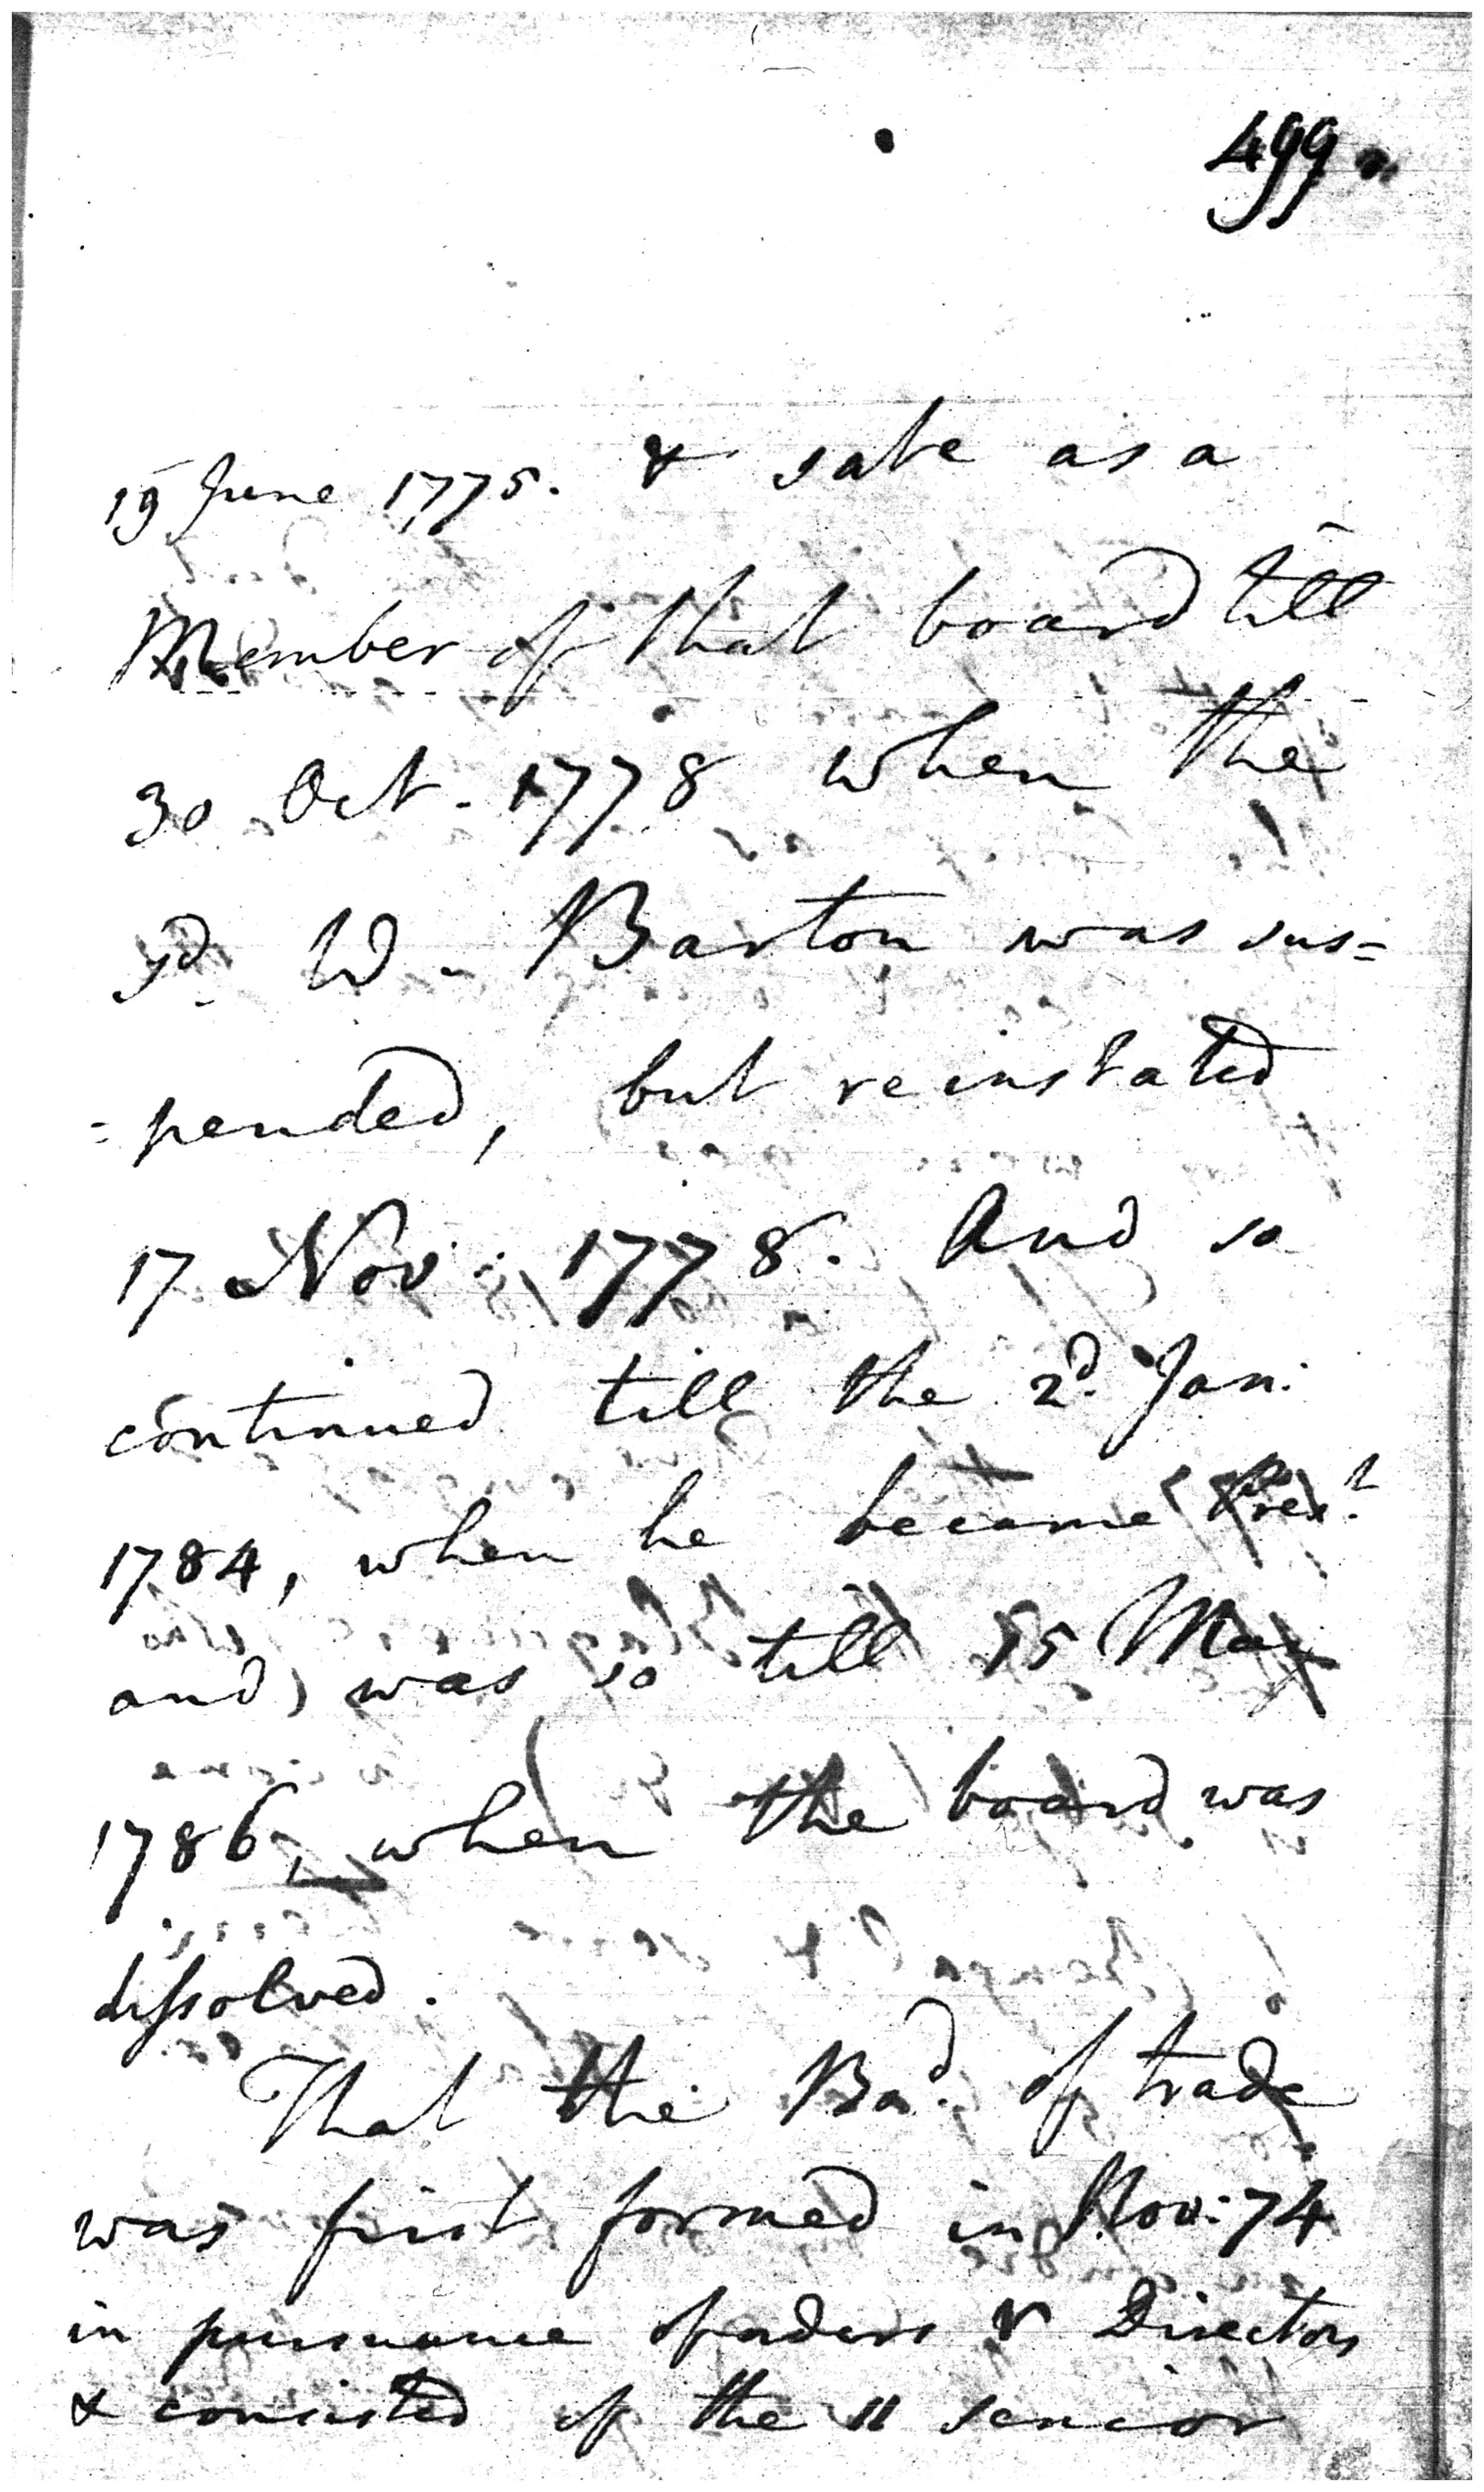 499
19 June 1775. & sate as a
Member of that board till
30 Oct. 1778 when the
sd. W. Barton was sus=
=pended, but reinstated
17 Nov: 1778. And so
continued till the 2d. Jan:
1784, when he became Prest.
and was so till 15 May
1786, when the board was
dissolved.
That the Bad. of trade
was first formed in Nov: 74
in pursuance of orders & Directors
& consisted of the 11 senior